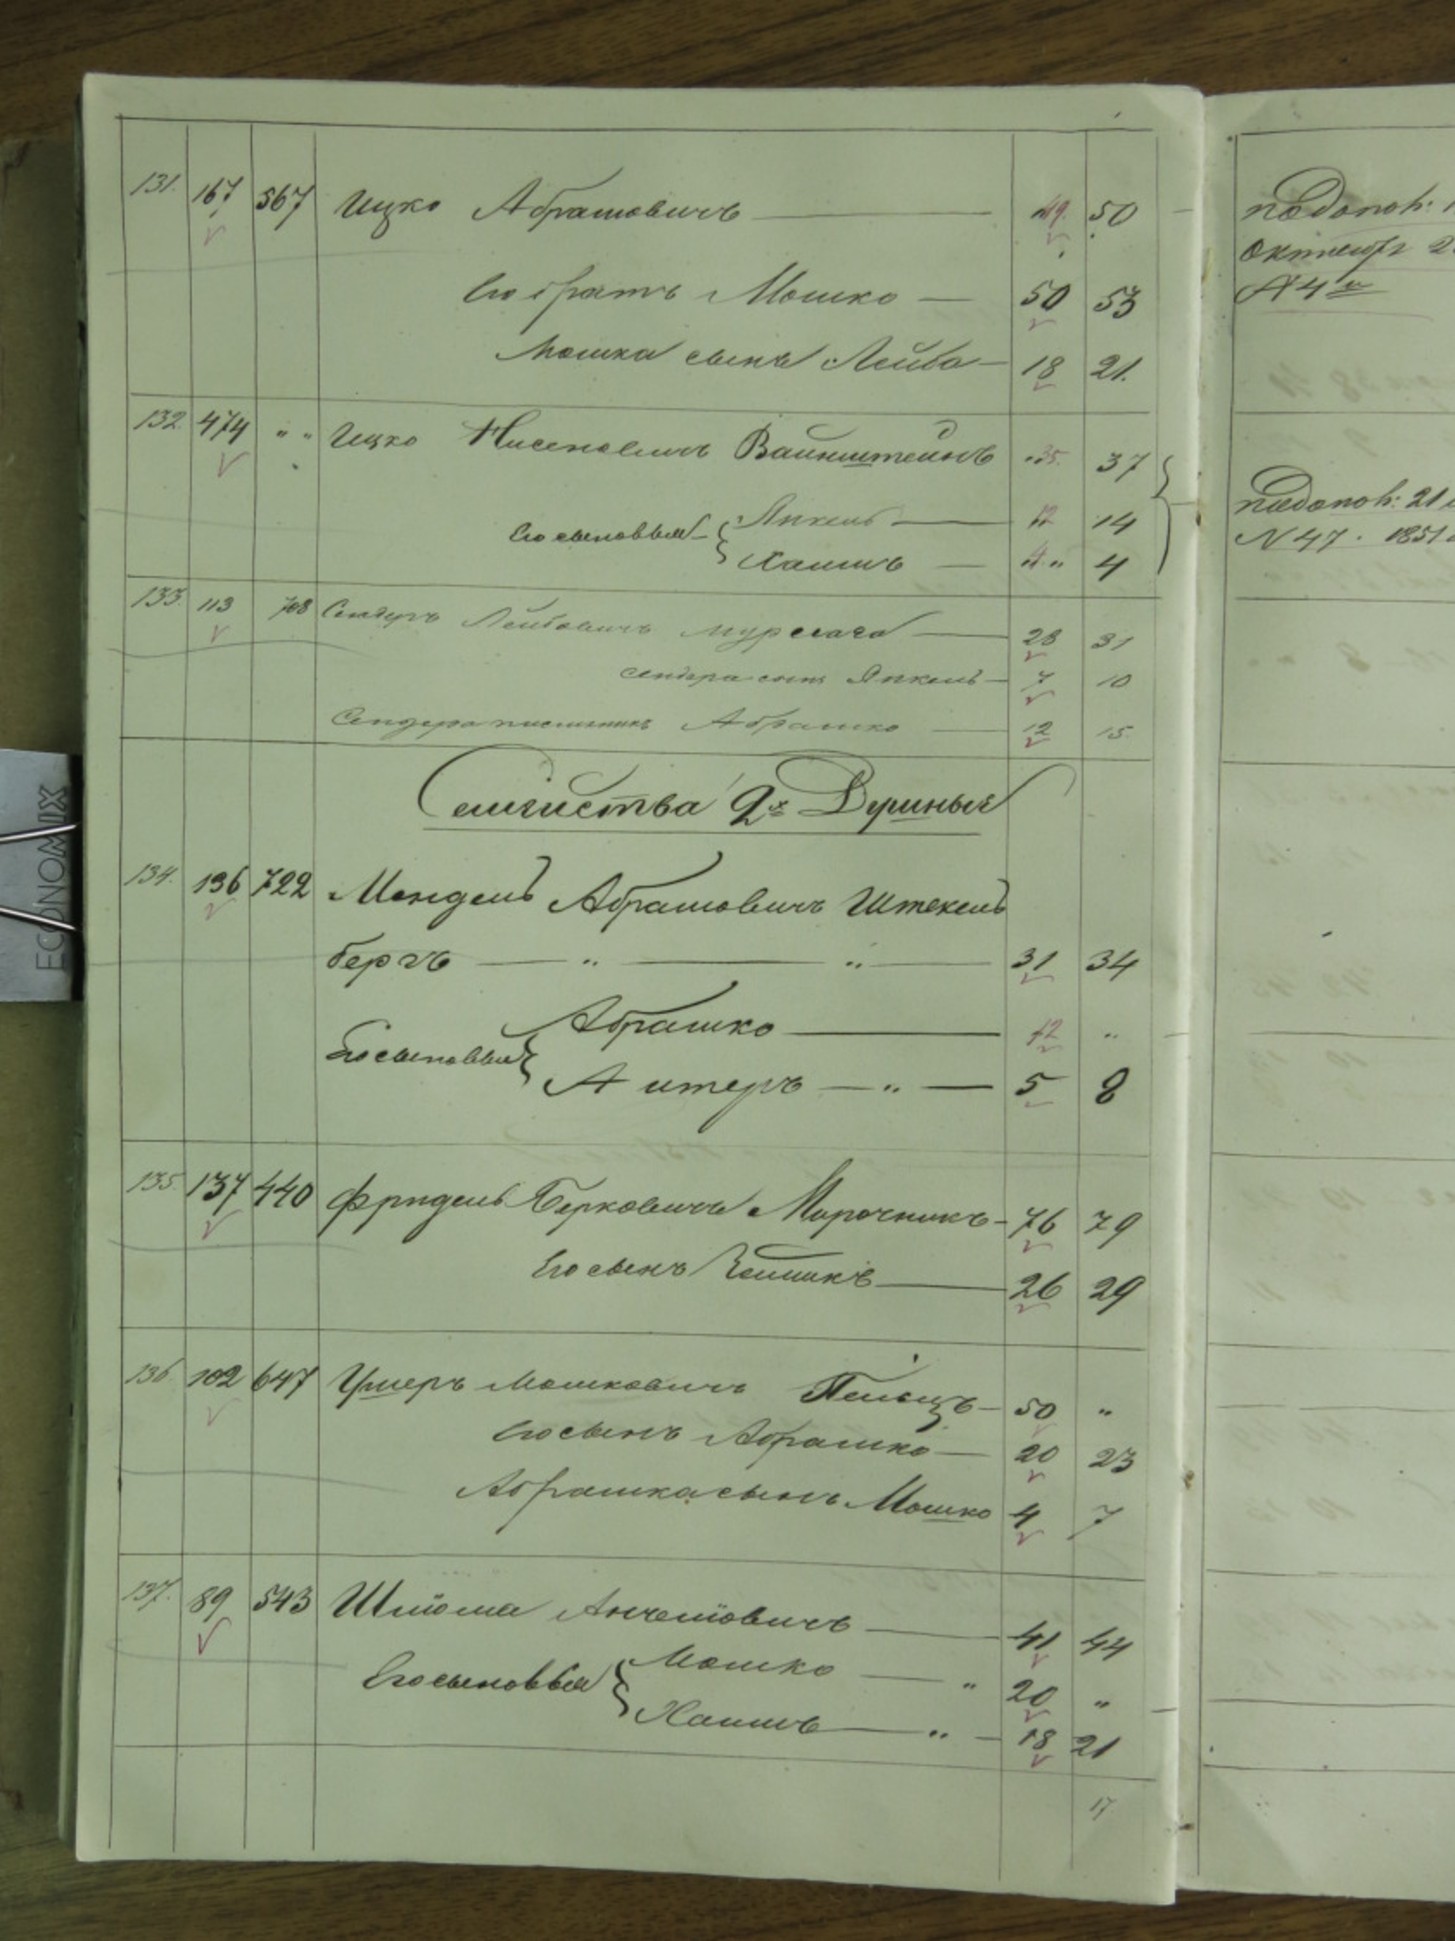 131. 167 567 Ицко Абрамовичъ 49. 50
Его братъ Мошко 50 53
Мошка сынъ Лейба 18 21.
132. 474 " " Ицко Нисеновичъ Вайнштейнъ 35. 37
Его сыновья Янкель 12 14
Хаимъ 4 " 4
133. 113 708 Сендеръ Лейбовичъ 28 31
Сендера сынъ Янкель 7 10
Сендера племянникъ Абрашко 12 15.
Семейства 2х Душныя
134. 136 722 Мендель Абрамовичъ Штекель
бергъ " " 31 34
Его сыновья Абрашко 12 "
Ашеръ " 5 8
135. 137 440 Фридель Берковичъ Мирочникъ 76 79
Его сынъ 26 29
136. 102 647 Ушеръ Мошковичъ 50 "
Его сынъ Абрашко 20 23
Абрашка сынъ Мошко 4 7
137. 89 543 Шлёма Анчелёвичъ 41 44
Его сыновья Мошко " 20 "
Хаимъ " 18 21
17
Октября 2
N 4
21
N 47. 1851
ECONOMIX